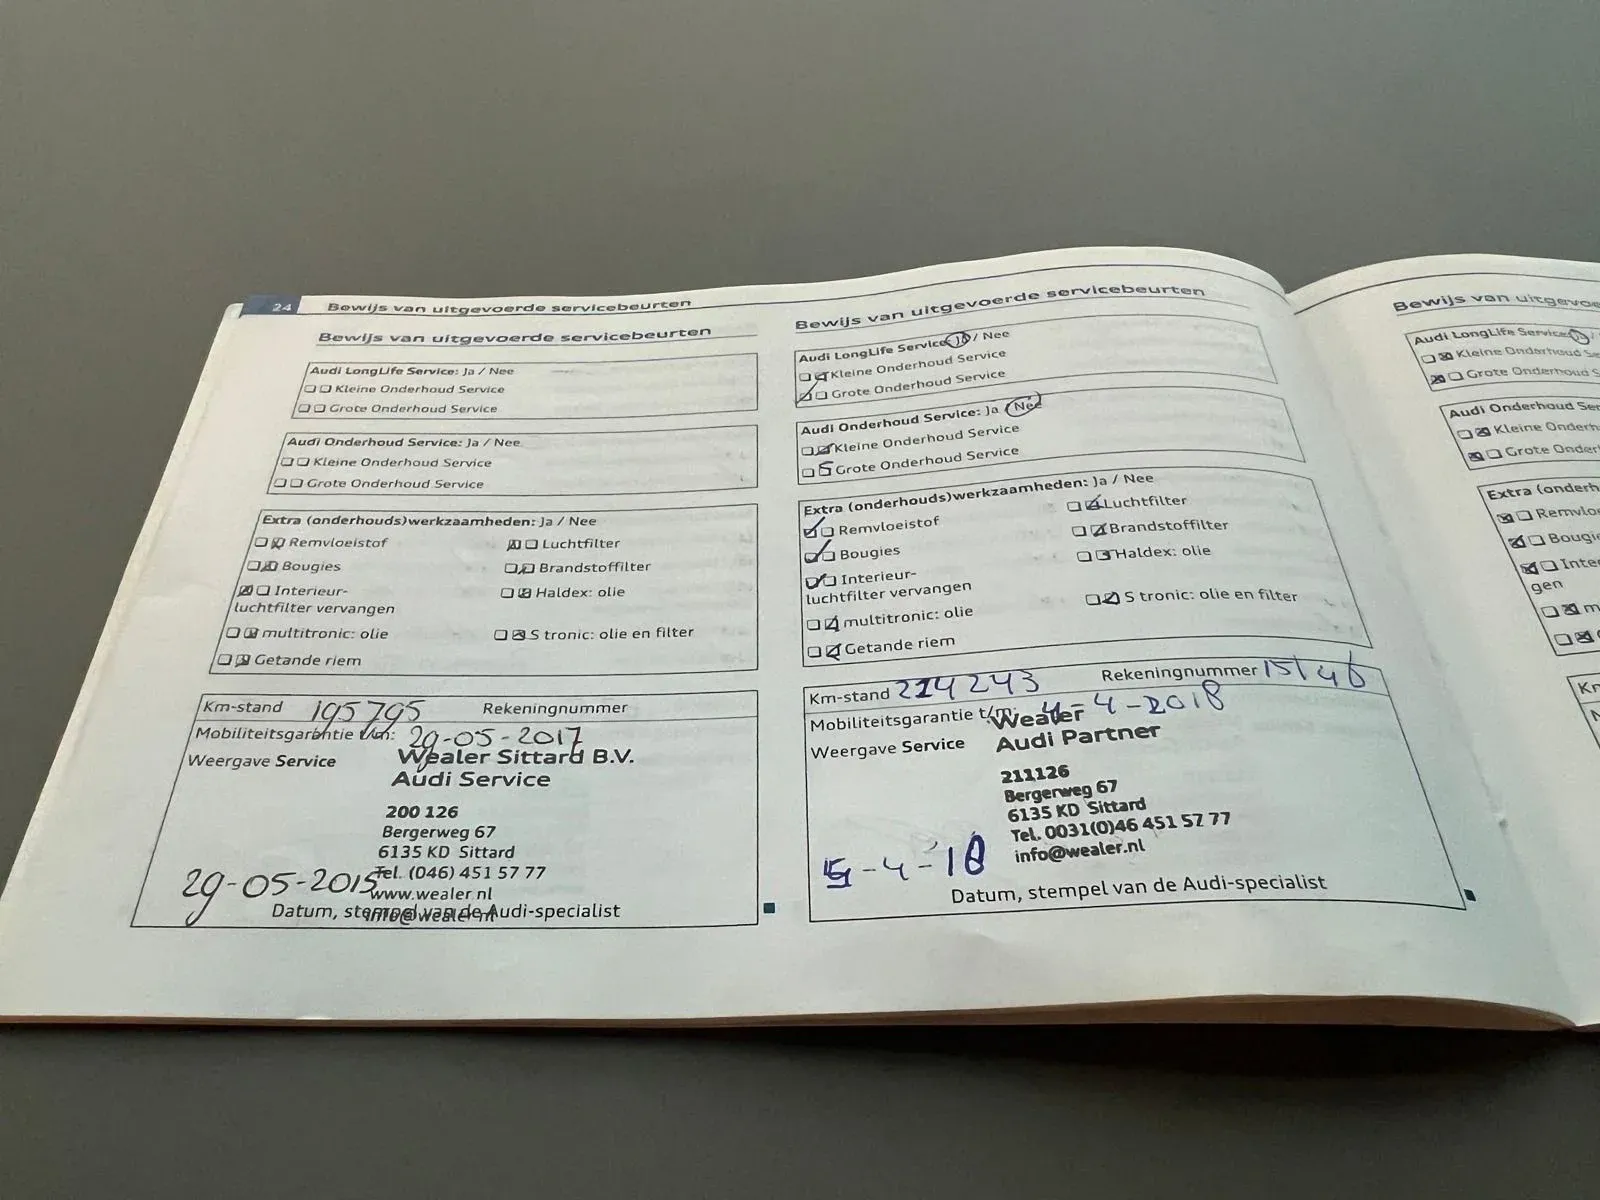 24
Bewijs van uitgevoerde servicebeurten
Bewijs van uitgevoerde servicebeurten
Audi LongLife Service: Ja / Nee
Kleine Onderhoud Service
Grote Onderhoud Service
Audi Onderhoud Service: Ja / Nee
Kleine Onderhoud Service
Grote Onderhoud Service
Extra (onderhouds)werkzaamheden: Ja / Nee
Remvloeistof
Luchtfilter
Bougies
Brandstoffilter
Interieur-
luchtfilter vervangen
Haldex: olie
multitronic: olie
S tronic: olie en filter
Getande riem
Km-stand 195795 Rekeningnummer
Mobiliteitsgarantie t/m: 29-05-2017
Weergave Service
Wealer Sittard B.V.
Audi Service
200 126
Bergerweg 67
6135 KD Sittard
Tel. (046) 451 57 77
www.wealer.nl
info@wealer.nl
29-05-2015
Datum, stempel van de Audi-specialist
Bewijs van uitgevoerde servicebeurten
Audi LongLife Service: Ja / Nee
Kleine Onderhoud Service
Grote Onderhoud Service
Audi Onderhoud Service: Ja / Nee
Kleine Onderhoud Service
Grote Onderhoud Service
Extra (onderhouds)werkzaamheden: Ja / Nee
Remvloeistof
Luchtfilter
Bougies
Brandstoffilter
Interieur-
luchtfilter vervangen
Haldex: olie
multitronic: olie
S tronic: olie en filter
Getande riem
Km-stand 214243 Rekeningnummer 15146
Mobiliteitsgarantie t/m: 4-4-2018
Weergave Service
Wealer
Audi Partner
211126
Bergerweg 67
6135 KD Sittard
Tel. 0031(0)46 451 57 77
info@wealer.nl
Datum, stempel van de Audi-specialist
Bewijs van
Audi LongLife Service:
Kleine Onderhoud
Grote Onderhoud
Audi Onderhoud
Kleine
Grote
Extra
gen